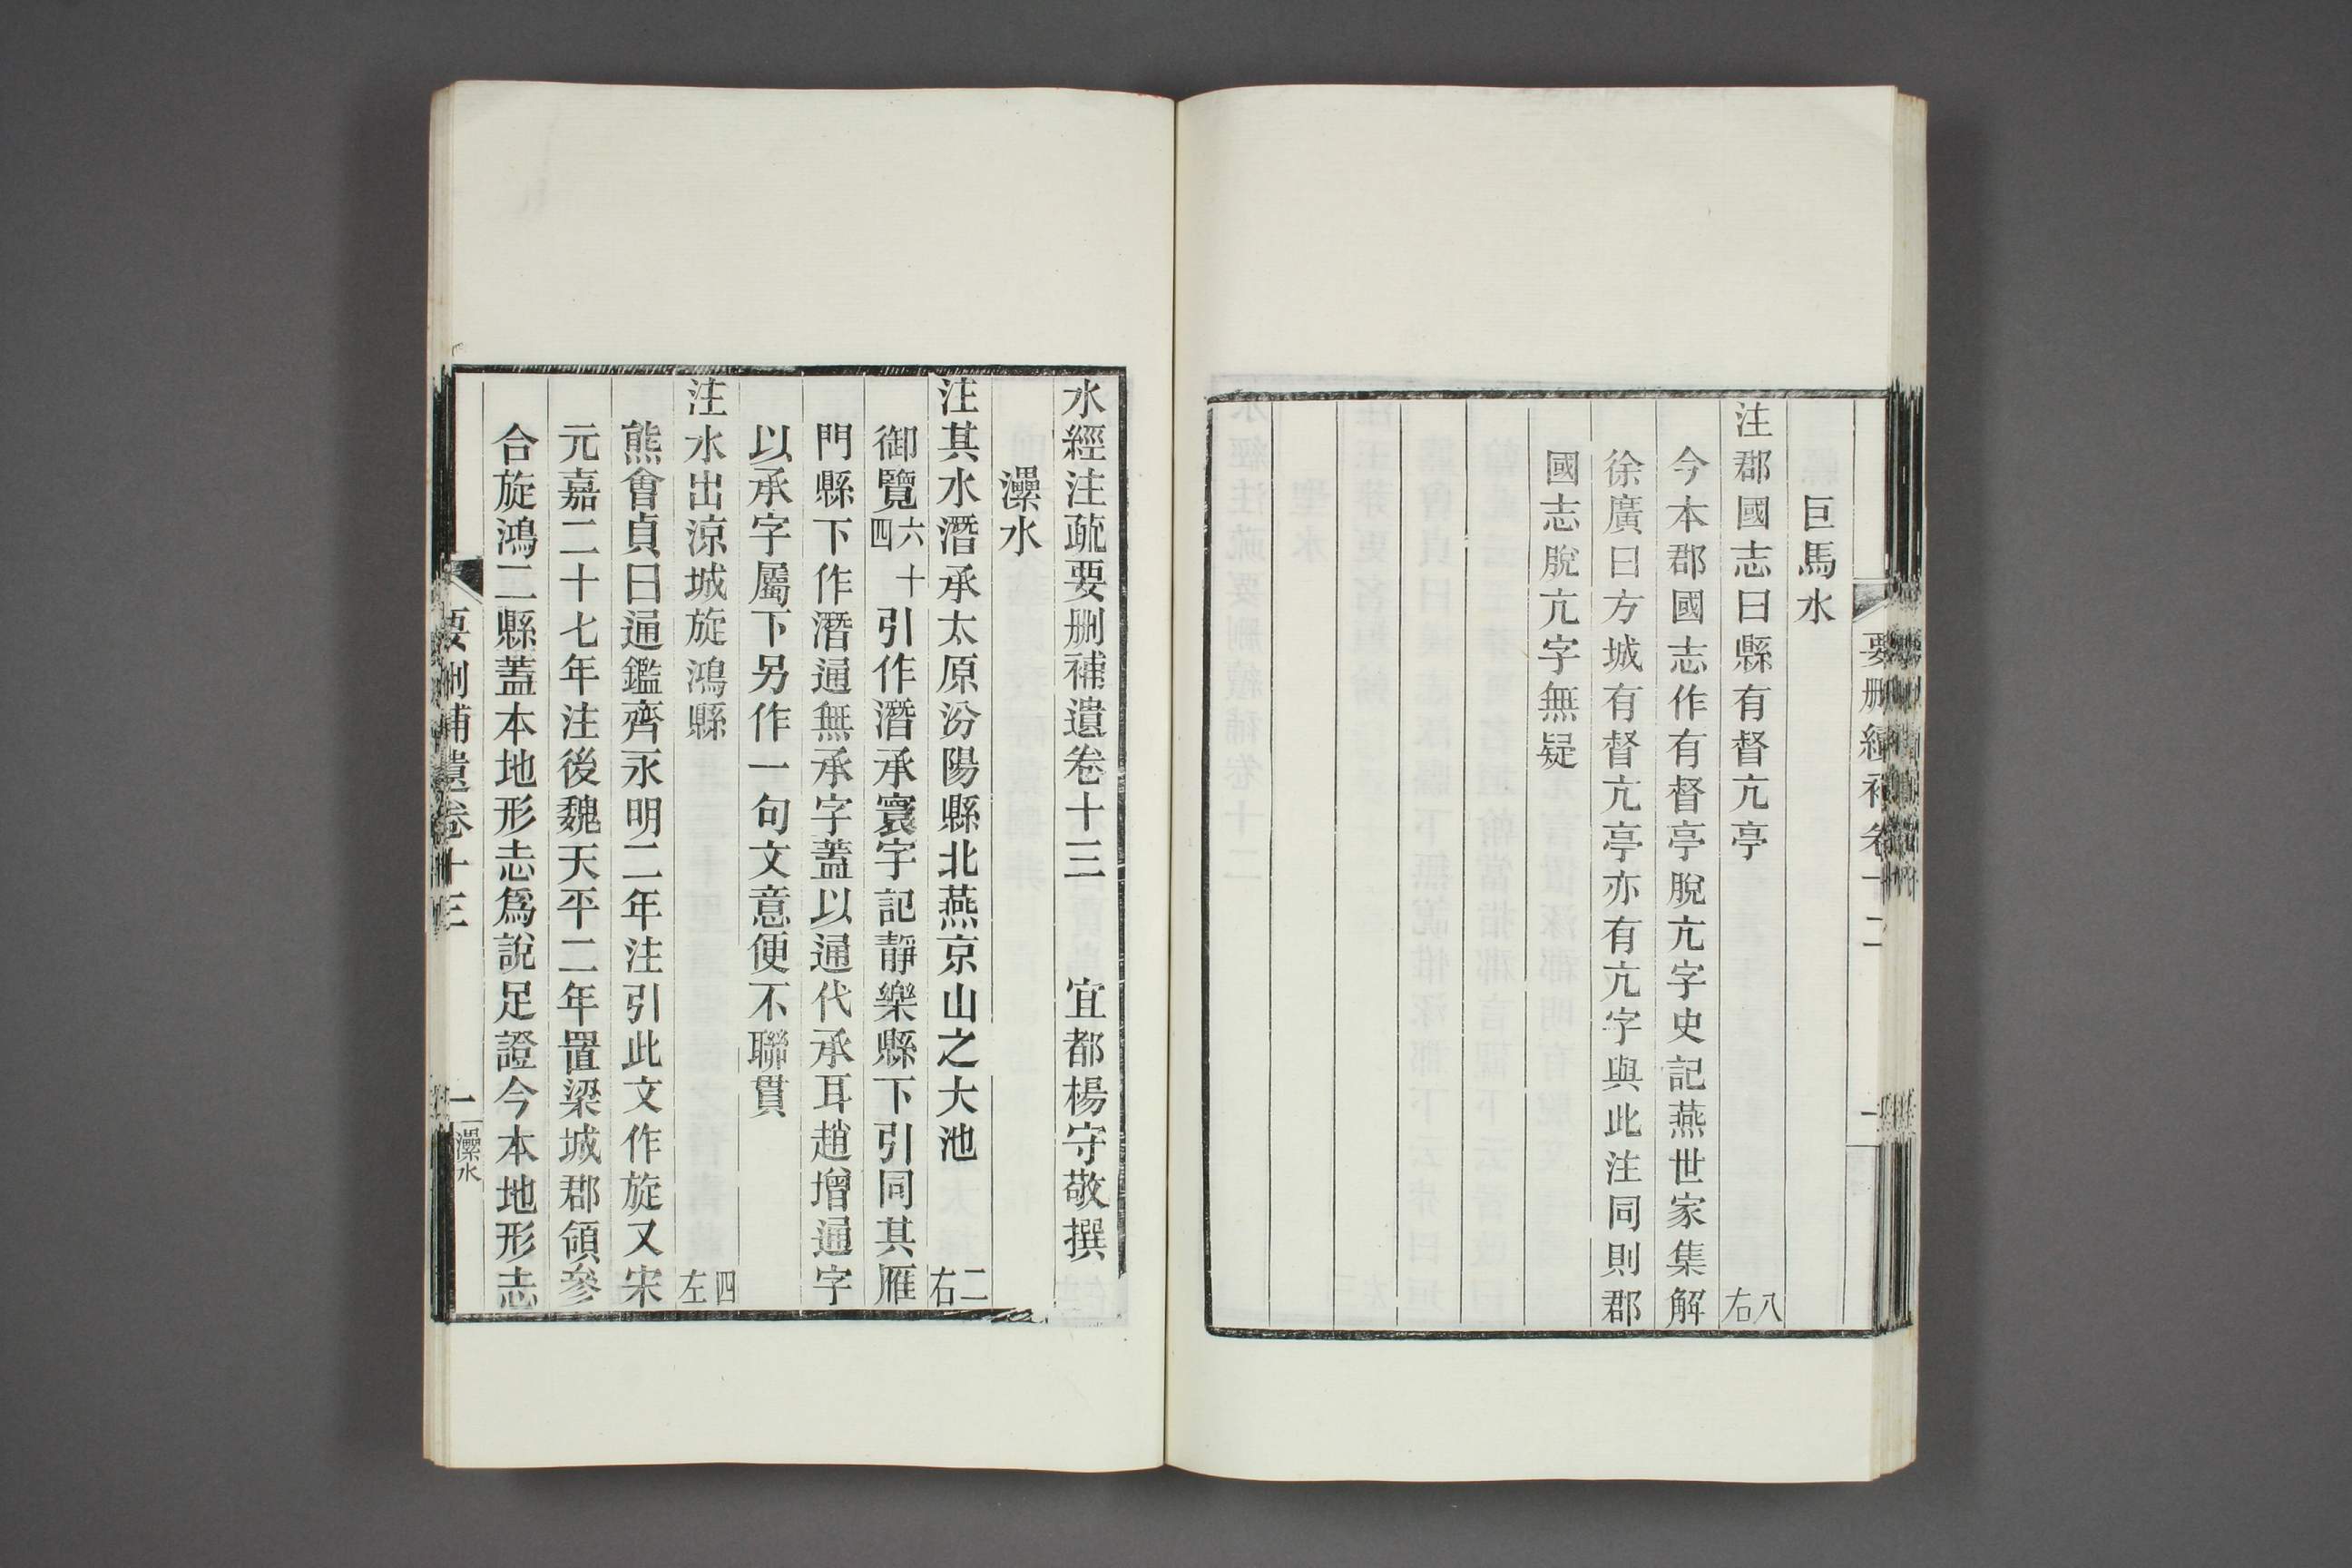 要刪續補卷十二
一
巨馬水
注郡國志曰縣有督亢亭 八右
今本郡國志作有督亭脫亢字史記燕世家集解
徐廣曰方城有督亢亭亦有亢字與此注同則郡
國志脫亢字無疑
水經注疏要刪補遺卷十三 宜都楊守敬撰
㶟水
注其水潛承太原汾陽縣北燕京山之大池 二右
御覽六十四引作潛承寰宇記靜樂縣下引同其雁
門縣下作潛通無承字蓋以通代承耳趙增通字
以承字屬下另作一句文意便不聯貫
注水出涼城旋鴻縣 四左
熊會貞曰通鑑齊永明二年注引此文作旋又宋
元嘉二十七年注後魏天平二年置梁城郡領參
合旋鴻二縣蓋本地形志爲說足證今本地形志
要刪補遺卷十三
一
㶟水